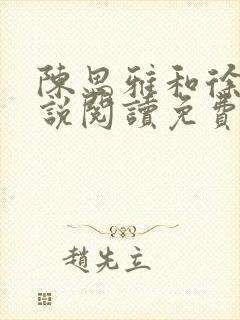 陳思雅和徐
說閱讀免費
趙先立